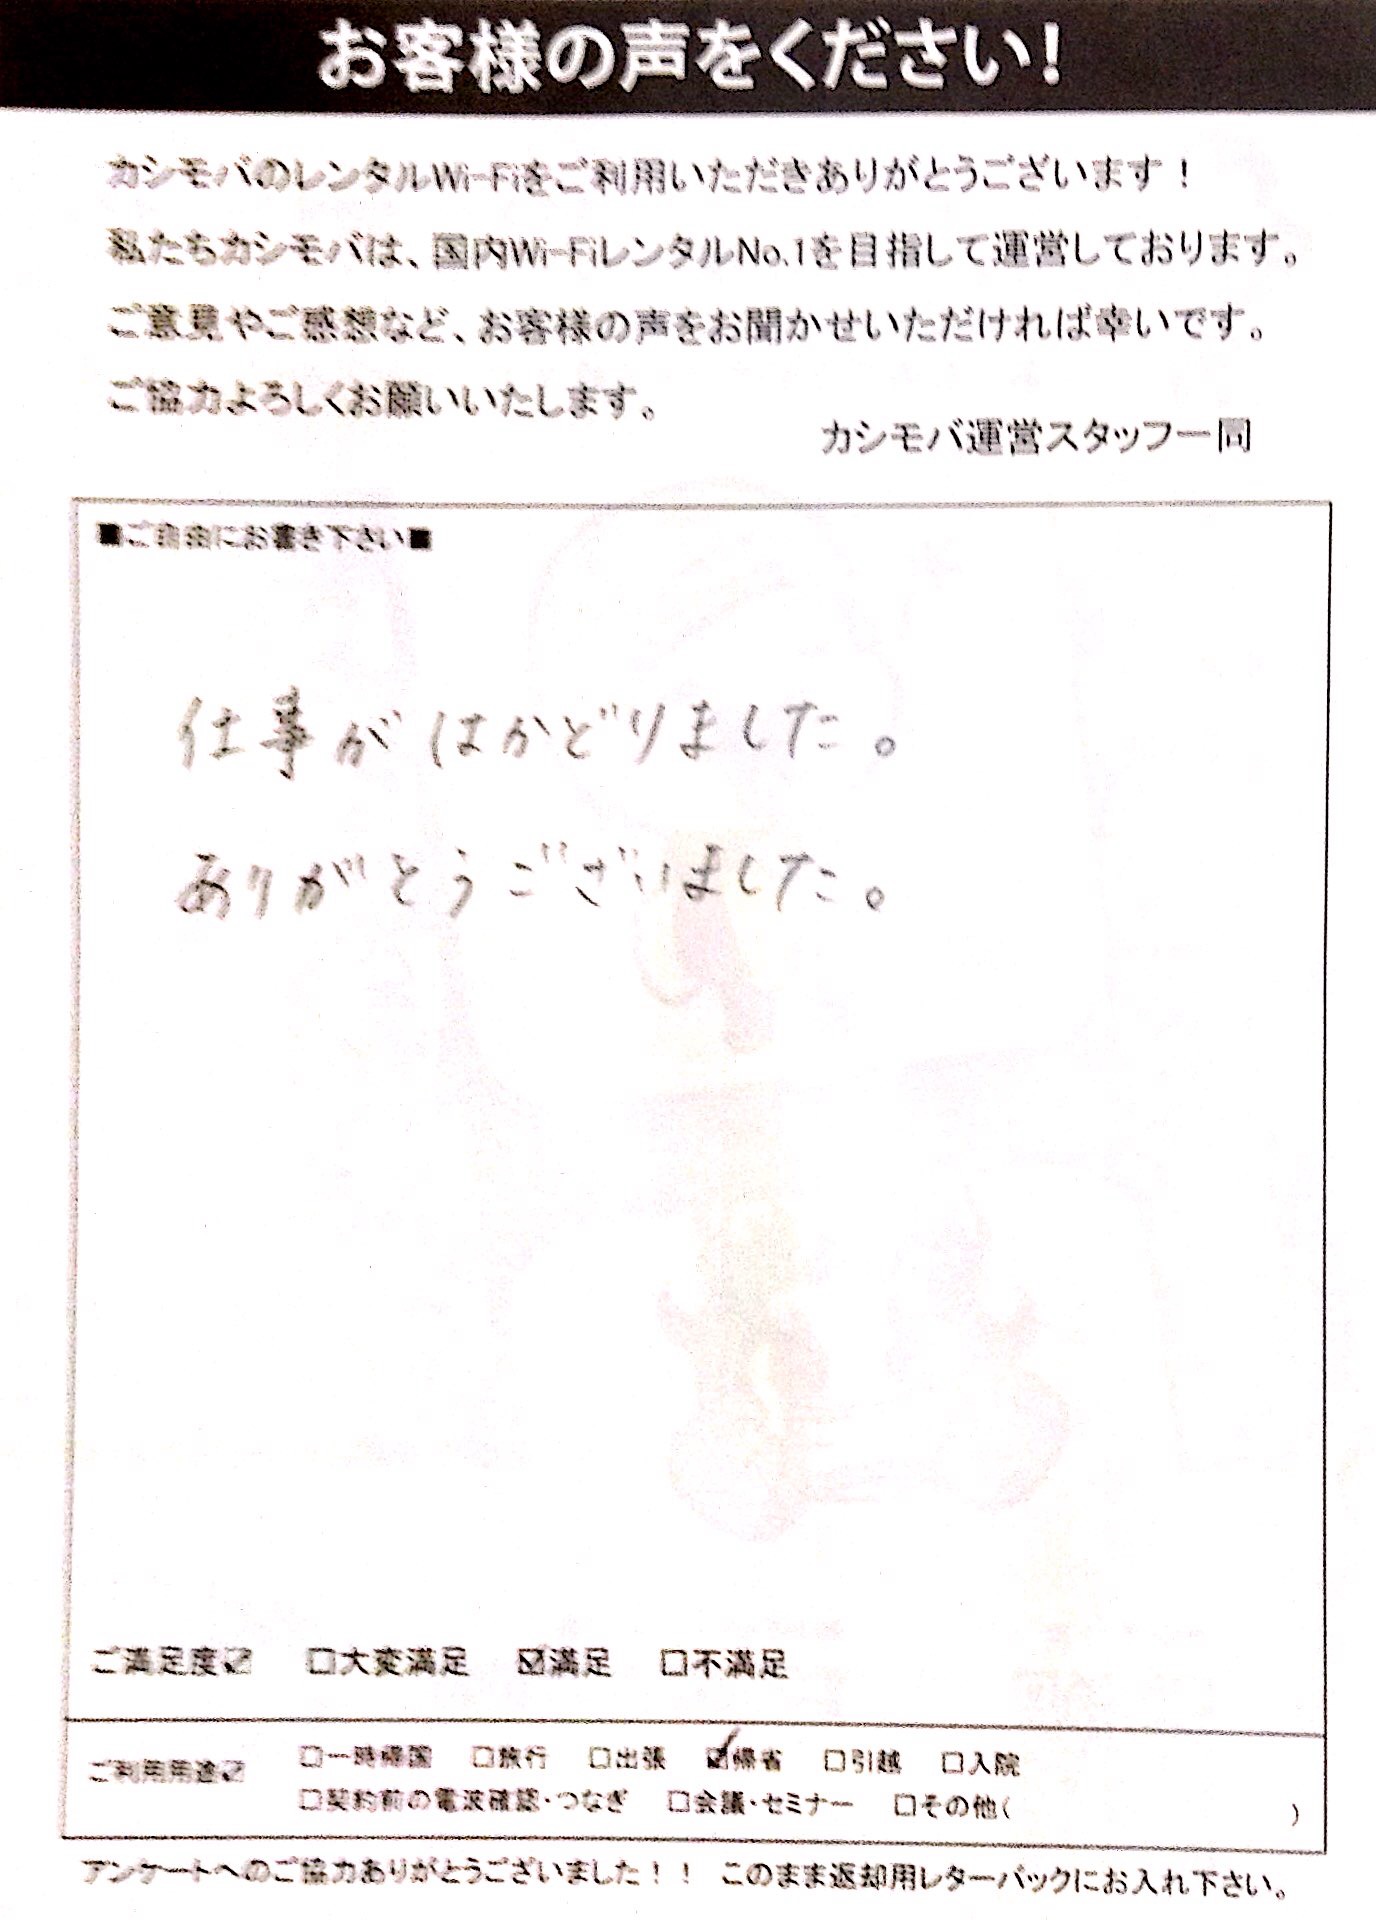 お客様の声をください!
カシモバのレンタルWi-Fiをご利用いただきありがとうございます！
私たちカシモバは、国内Wi-FiレンタルNo.1を目指して運営しております。
ご意見やご感想など、お客様の声をお聞かせいただければ幸いです。
ご協力よろしくお願いいたします。
カシモバ運営スタッフ一同
■ご自由にお書き下さい■
仕事がはかどりました。
ありがとうございました。
ご満足度☑ □大変満足 ☑満足 □不満足
ご利用用途☑ □一時帰国 □旅行 □出張 ☑帰省 □引越 □入院
□契約前の電波確認・つなぎ □会議・セミナー □その他( )
アンケートへのご協力ありがとうございました！！ このまま返却用レターパックにお入れ下さい。